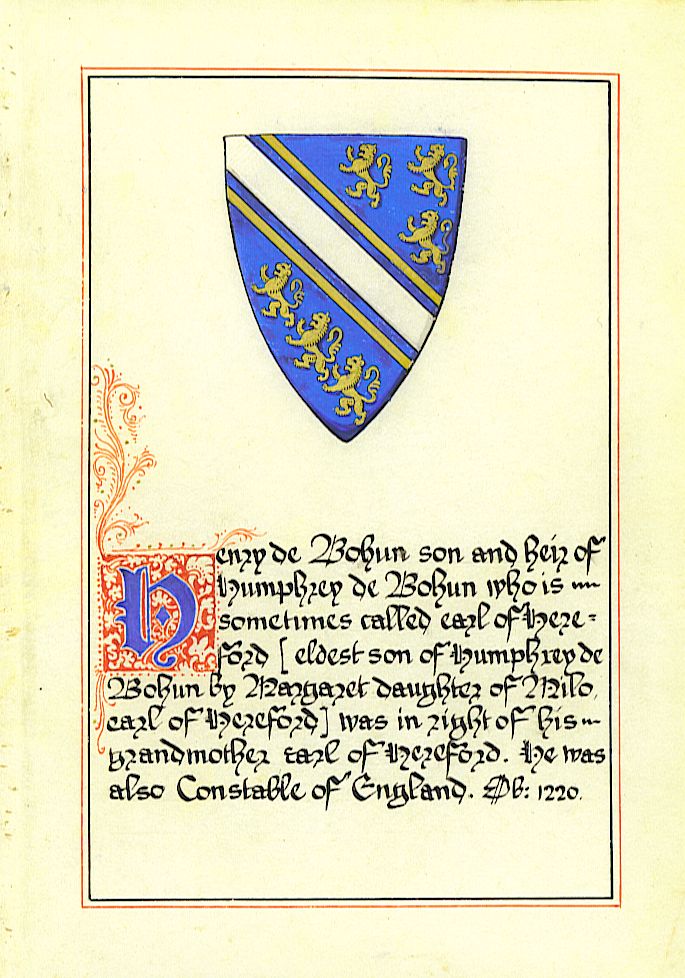 Henry de Bohun son and heir of
Humphrey de Bohun who is
sometimes called earl of Here-
ford [eldest son of Humphrey de
Bohun by Margaret daughter of Milo,
earl of Hereford] was in right of his
grandmother earl of Hereford. He was
also Constable of England. Ob: 1220.